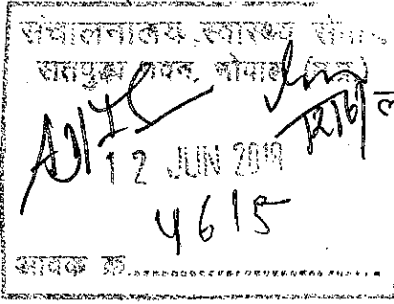 संचालनालय स्वास्थ्य सेवा
सतपुड़ा भवन, भोपाल (म.प्र.)
12 JUN 2019
4615
आवक क्र.